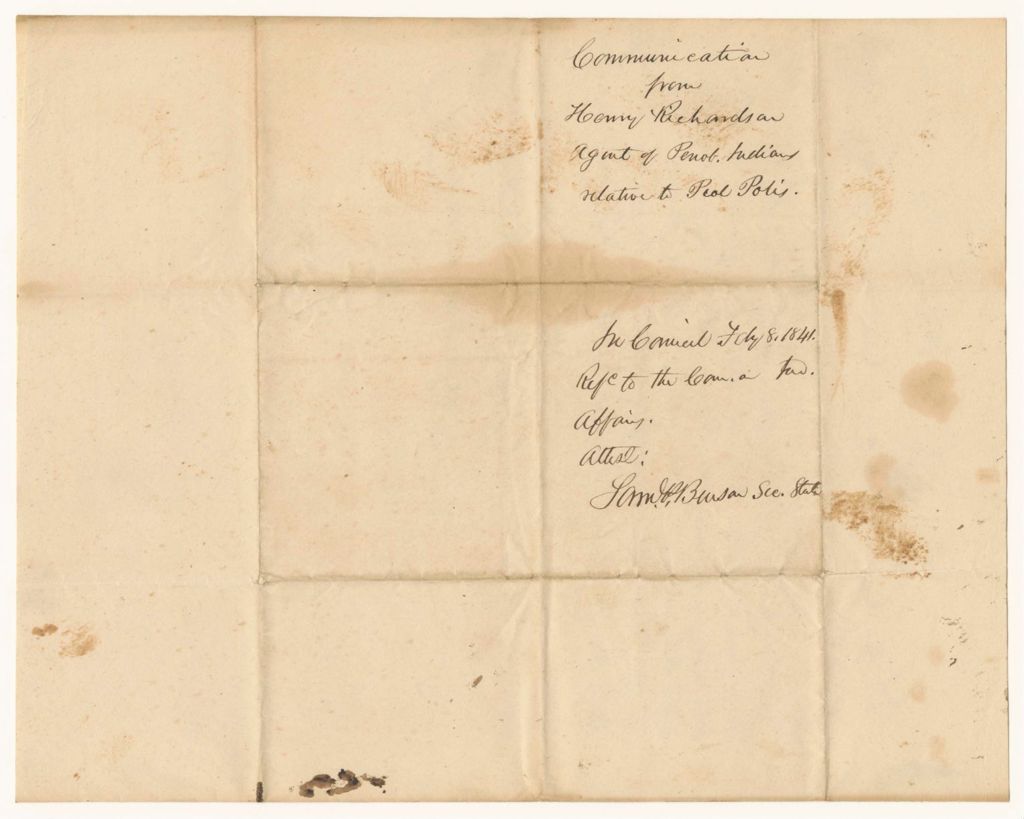 Communication
from
Henry Richardson
Agent of Penob. Indians
relative to Peol Polis.
In Council Feby 8. 1841.
Refc to the Com. on Ind.
Affairs.
Attest:
Saml P. Benson Sec. State